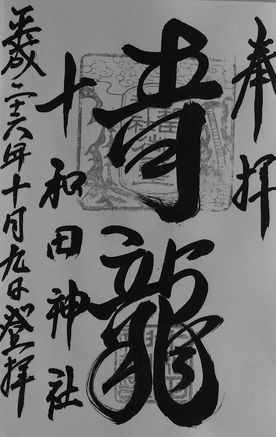 奉拝
青龍
十和田神社
平成二十六年十月九日登拝